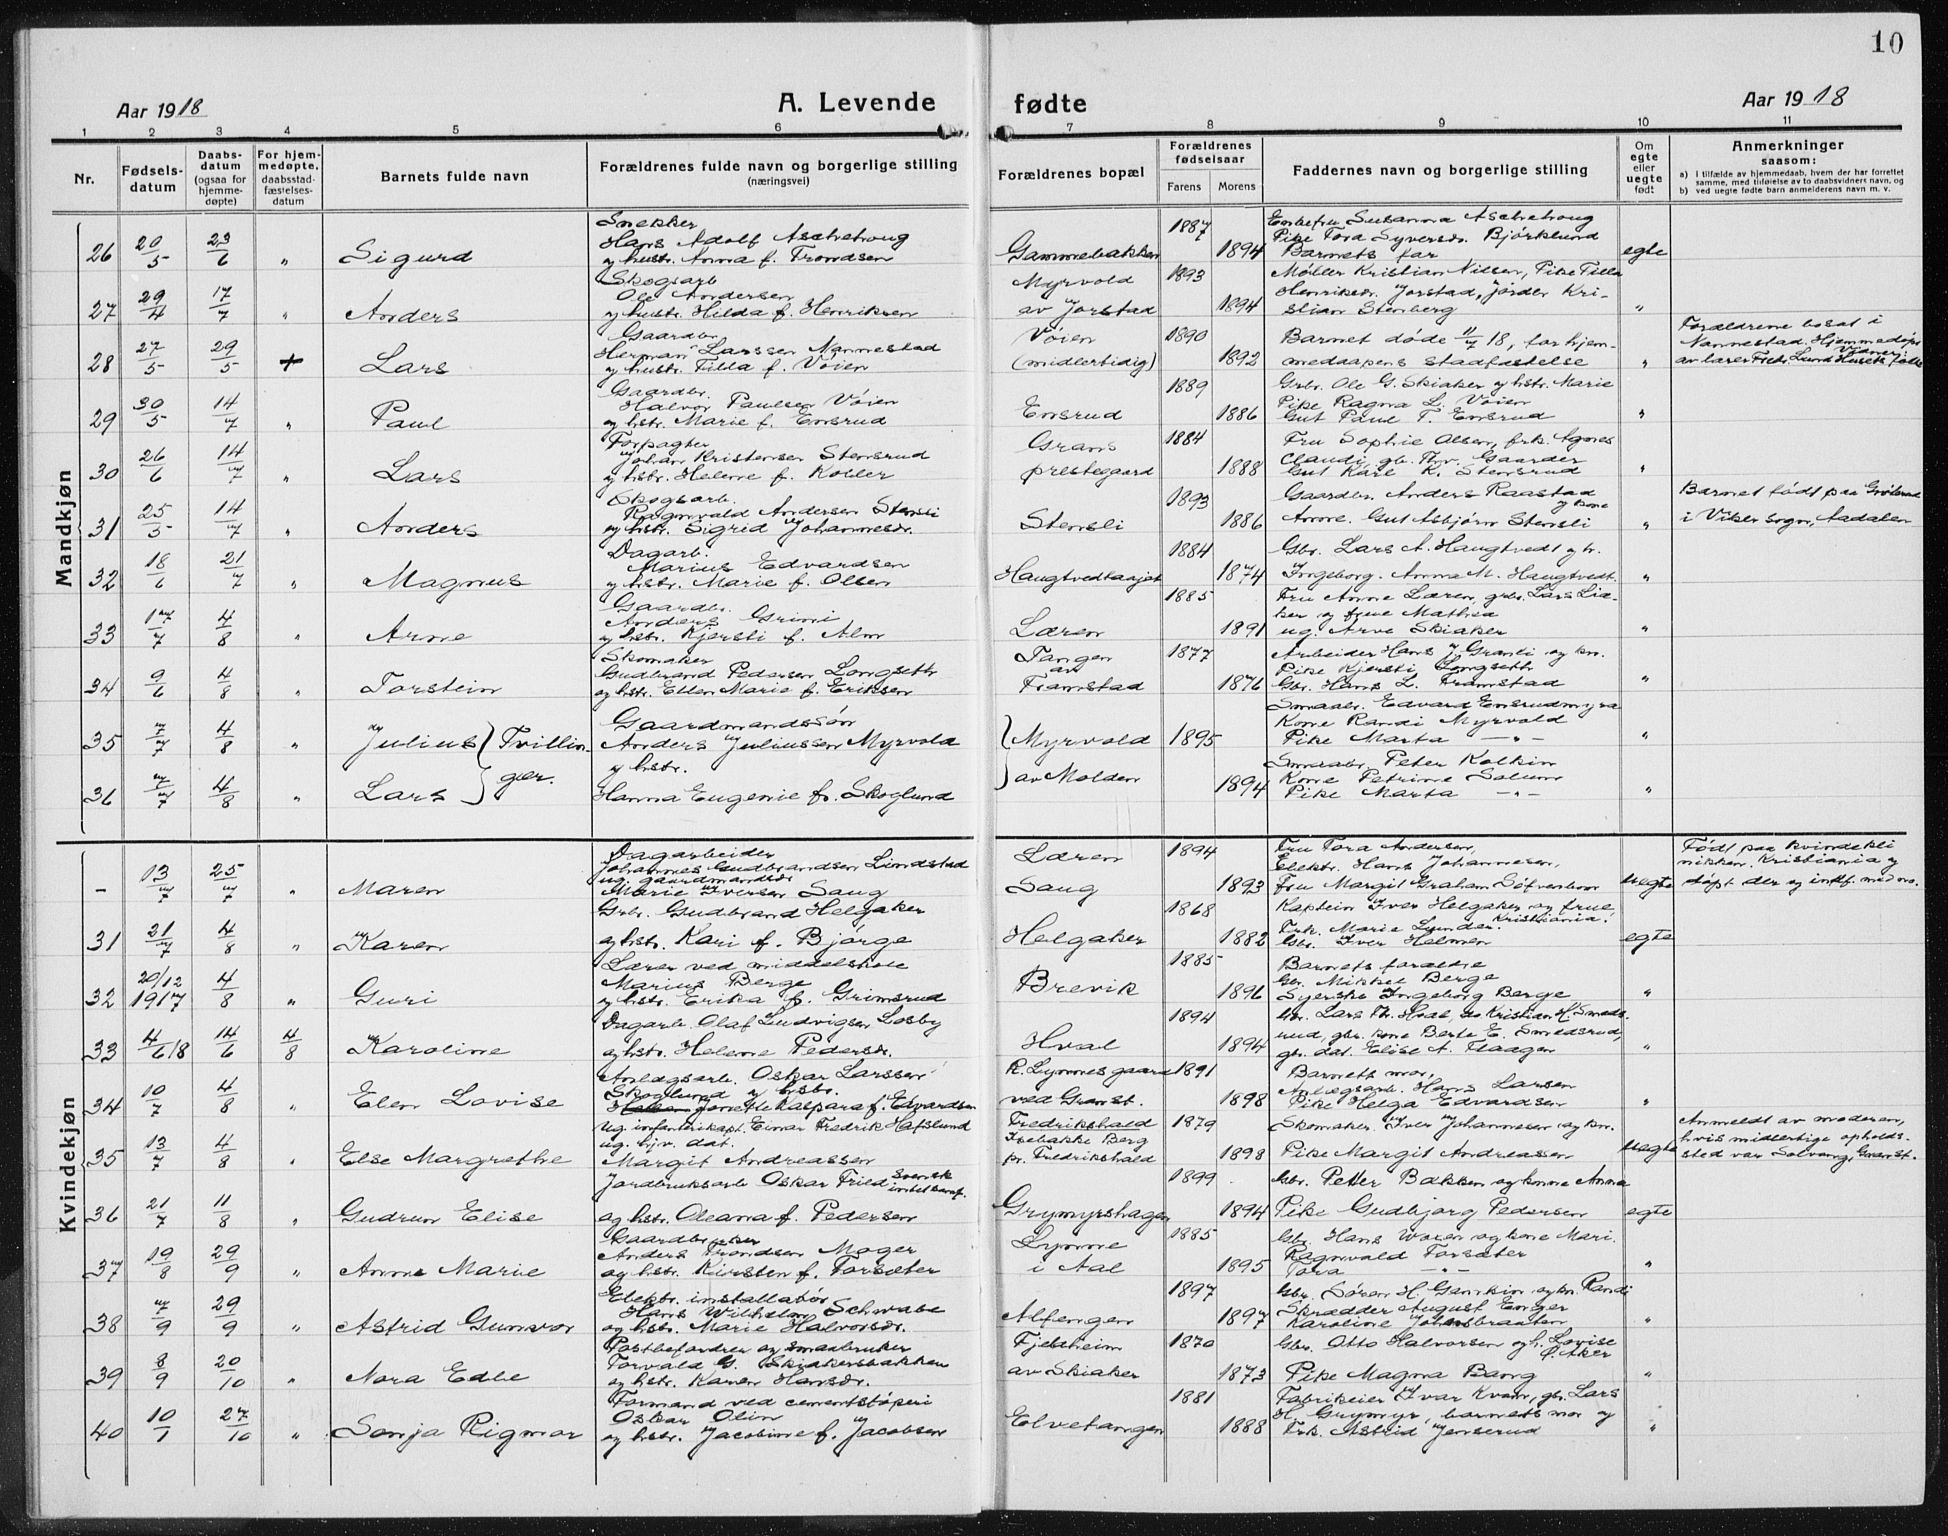 10
Aar 1918
A. Levende
fødte
Aar 1918
1 2 3 4 5 6 7 8 9 10 11
Nr.
Fødsels-
datum
Daabs-
datum
(ogsaa for
hjemme-
døpte)
For hjem-
medøpte,
daabsstad-
fæstelses-
datum
Barnets fulde navn
Forældrenes fulde navn og borgerlige stilling
(næringsvei)
Forældrenes bopæl
Forældrenes
fødselsaar
Farens Morens
Faddernes navn og borgerlige stilling
Om
egte
eller
uegte
født
Anmerkninger
saasom:
a) i tilfælde av hjemmedaab, hvem der har forrettet
samme, med tilføielse av to daabsvidners navn, og
b) ved uegte fødte barn anmelderens navn m. v.
Mandkjøn
26 20/5 23/6 " Sigurd
Snekker
Hans Adolf Aschehoug
og hustr. Anna f. Trondsen
Gammebakken
1887
1894
Enkefru Susanna Aschehoug
Pike Tora Syversdr. Bjørklund
Barnets far
egte
27 29/4 17/7 " Anders
Skogsarb.
Ole Andersen
og hustr. Hilda f. Henriksen
Myrvold
av Jorstad
1893
1894
Møller Kristian Nilsen, Pike Tilla
Henriksdr. Jorstad, Jorder Kri-
stian Stenberg
"
28 27/5 29/5 + Lars
Gaardbr.
Herman Larssen Nannestad
og hustr. Tilla f. Vøien
Vøien
(midlertidig)
1890
1892
Barnet døde 11/7 18, før hjem-
medaapens stadfæstelse
"
Forældrene bosat i
Nannestad. Hjemmedøpt
av lærer Fredr. Lund. Vidner:
Husets folk
29 30/5 14/7 " Paul
Gaardbr.
Halvor Paulsen Vøien
og hstr. Marie f. Ensrud
Ensrud
1889
1886
Grbr. Ole G. Skiaker og hstr. Marie
Pike Ragna L. Vøien
Gut Paul T. Ensrud
"
30 26/6 14/7 " Lars
Forpagter
Johan Kristensen Stensrud
og hstr. Helene f. Koller
Grans
prestegaard
1884
1888
Fru Sophie Olsen, frk. Agnes
Claudi, gb. Thv. Gaarder
Gut Kåre K. Stensrud
"
31 25/5 14/7 " Anders
Skogsarb.
Ragnvald Andersen Stensli
og hstr. Sigrid Johannesdr.
Stensli
1893
1886
Gaardbr. Anders Raastad
og kone
Anne. Gut Asbjørn Stensli
"
Barnet født paa
i Viker sogn, Aadalen
32 18/6 21/7 " Magnus
Dagarb.
Marius Edvardsen
og hstr. Marie f. Olsen
Haugtvedteajet
1884
1874
Gbr. Lars A. Haugtvedt og h.
Ingeborg. Anna M. Haugtvedt.
"
33 17/7 4/8 " Arne
Gaardbr.
Anders Grini
og hstr. Kjersti f. Alm
Læren
1885
1891
Fru Anne Læren, grbr. Lars Lia-
ker og frue Mathea
ug. Arve Skiaker
"
34 9/6 4/8 " Torstein
Skomaker
Gudbrand Pedersen Longseth
og hstr. Ellen Marie f. Eriksen
Tangen
av
Framstad
1877
1876
Arbeider Hans J. Granli og kn.
Pike Kjersti Longseth
Gbr. Hans L. Framstad
"
35 7/7 4/8 " Julius } Tvillin-
Gaardmandssøn
Anders Juliussen Myrvold
og hstr.
Myrvold
1895
Smaabr. Edvard Ensrudmyra
Kone Randi Myrvold
Pike Marta — " —
"
36 7/7 4/8 " Lars } ger.
Hanna Eugenie f. Skoglund
av Molden
1894
Smaabr. Peter Kolkin
Kone Petrine Solum
Pike Marta — " —
"
Kvindekjøn
- 13/7 25/7 " Maren
Dagarbeider
Johannes Gudbrandsen Lindstad
ug. gaardmandsdr
Marie Iversen Saug
Læren
Saug
1894
1893
Fru Tora Andersen,
Elektr. Hans Johannesen,
Fru Margit Graham
uegte
Født paa kvindekli
nikken, Kristiania og
døpt der og
31 21/7 4/8 " Karen
Grbr. Gudbrand Helgaker
og hstr. Kari f. Bjørge
Helgaker
1868
1882
Kaptein Iver Helgaker og frue
Kristiania.
Frk. Marie Lunder.
Gbr. Iver Helmen
egte
32 20/12 1917 4/8 " Guri
Lærer ved middelskole
Marius Berge
og hstr. Erika f. Grimsrud
Brevik
1885
1896
Barnets forældre
Gbr. Mikkel Berge
Syerske Ingeborg Berge
"
33 4/6 18 14/6 4/8 Karoline
Dagarb. Olaf Ludvigsen Løsby
og hstr. Helene Pedersdr.
Hval
1894
1894
Gbr. Lars Th. Hval, do Kristian H. Smeds-
rud, gbr. kone Berte E. Smedsrud,
gbr. dat. Elise A. Flaagen
"
34 10/7 4/8 " Elen Lovise
Anlægsarb. Oskar Larssen
Skoglund og hstr.
Jenette Kaspara f. Edvardsen
K. Lynnes gaard
ved Gran st.
1891
1898
Barnets mor,
Anlægsarb. Hans Larsen
Pike Helga Edvardsen
"
35 13/7 4/8 " Else Margrethe
Ug. infanterikapt. Einar Fredrik Hafslund
ug. hjv. dat.
Margit Andreassen
Fredrikshald
Isebakke Berg
pr. Fredrikshald
1879
1898
Skomaker. Iver Johannesen og kn.
Pike Margit Andreassen
uegte
Anmeldt av moderen,
hvis midlertidige opholds-
sted var Solvang, Gran st.
36 21/7 11/8 " Gudrun Elise
Jordbruksarb. Oskar Fried svensk
og hstr. Oleana f. Pedersen
Grymyrshagen
1899
1894
Gbr. Petter Bakken og kone Anna
Pike Gudbjørg Pedersen
egte
37 19/8 29/9 " Anne Marie
Gaardbruker
Anders Trondsen Mager
og hstr. Kirsten f. Torsæter
Lynne
i Aal
1885
1895
Gbr. Hans Woxen og kone Mari.
Ragnvald Torsæter
Tora — " —
"
38 7/9 29/9 " Astrid Gunvor
Elektr. installatør
Hans Wilhelm Schwabe
og hstr. Marie Halvorsdr.
Alfengen
1897
1897
Gbr. Søren H. Gamkin og kn. Randi
Skrædder August Enger
Karoline Johnsbraaten
"
39 8/9 20/10 " Nora Edle
Postbefordrer og smaabruker
Torvald G. Skiakersbakken
og hstr. Karen Hansdr.
Fjeldheim
av Skiaker
1870
1873
Gbr. Otto Halvorsen og h. Lovise
Ø. Aker
Pike Magna Bang
"
40 10/1 27/10 " Sonja Rigmor
Formand ved cementstøperi
Oskar Olin
og hstr. Jacobine f. Jacobsen
Elvetangen
1881
1888
Fabrikeier Ivar Kvam, gbr. Lars
H. Grymyr, barnets mor og
Frk. Astrid Jenserud
"